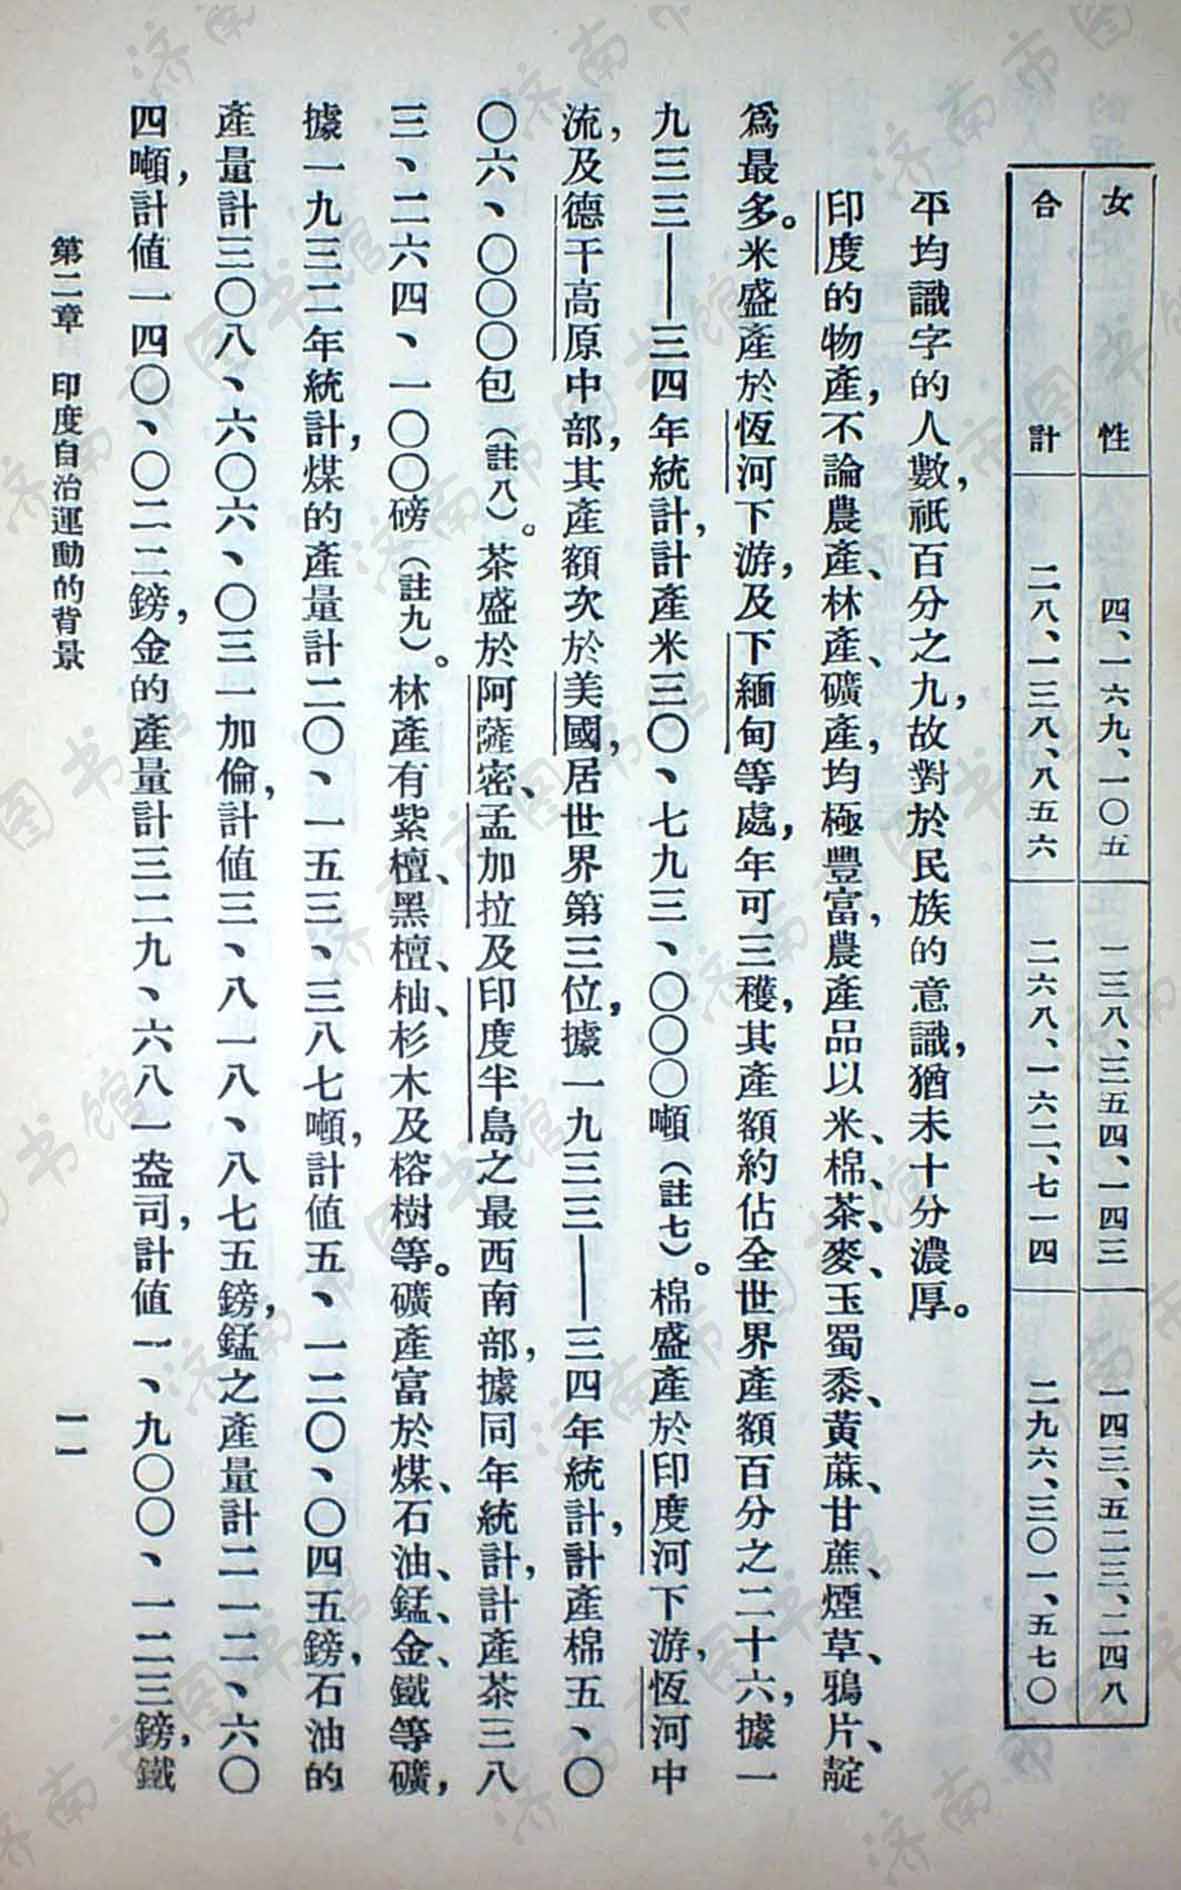 女性 四、一六九、一〇五 一三八、三五四、一四三 一四三、五二三、二四八
合計 二八、一三八、八五六 二六八、一六二、七一四 二九六、三〇一、五七〇
平均識字的人數，祇百分之九，故對於民族的意識，猶未十分濃厚。
印度的物產，不論農產、林產、礦產，均極豐富，農產品以米、棉、茶、麥、玉蜀黍、黃蔴、甘蔗、煙草、鴉片、靛
爲最多。米盛產於恆河下游，及下緬甸等處，年可三穫，其產額約佔全世界產額百分之二十六，據一
九三三——三四年統計，計產米三〇、七九三、〇〇〇噸（註七）。棉盛產於印度河下游，恆河中
流，及德干高原中部，其產額次於美國，居世界第三位，據一九三三——三四年統計，計產棉五、〇
〇六、〇〇〇包（註八）。茶盛於阿薩密、孟加拉及印度半島之最西南部，據同年統計，計產茶三八
三、二六四、一〇〇磅（註九）。林產有紫檀、黑檀、柚、杉木及榕樹等。礦產富於煤、石油、錳、金、鐵等礦，
據一九三二年統計，煤的產量計二〇、一五三、三八七噸，計值五、一二〇、〇四五鎊，石油的
產量計三〇八、六〇六、〇三一加倫，計值三、八一八、八七五鎊，錳之產量計二一二、六〇
四噸，計值一四〇、〇二二鎊，金的產量計三二九、六八一盎司，計值一、九〇〇、一二三鎊，鐵
第二章 印度自治運動的背景
一一
济南市图书馆